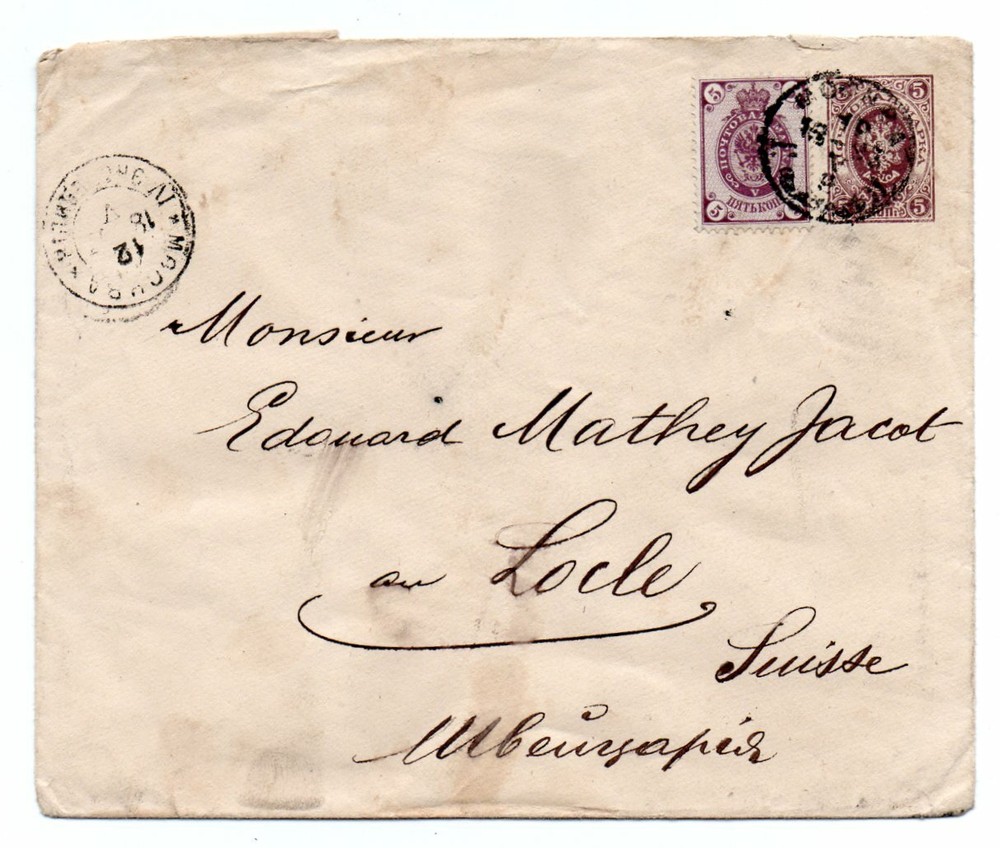 5 5
ПОЧТОВАЯ
5 ПЯТЬ КОП
МАРКА
5
МОСКВА
18 12
Monsieur
Edouard Mathey Jacot
au Locle
Suisse
Швейцарія